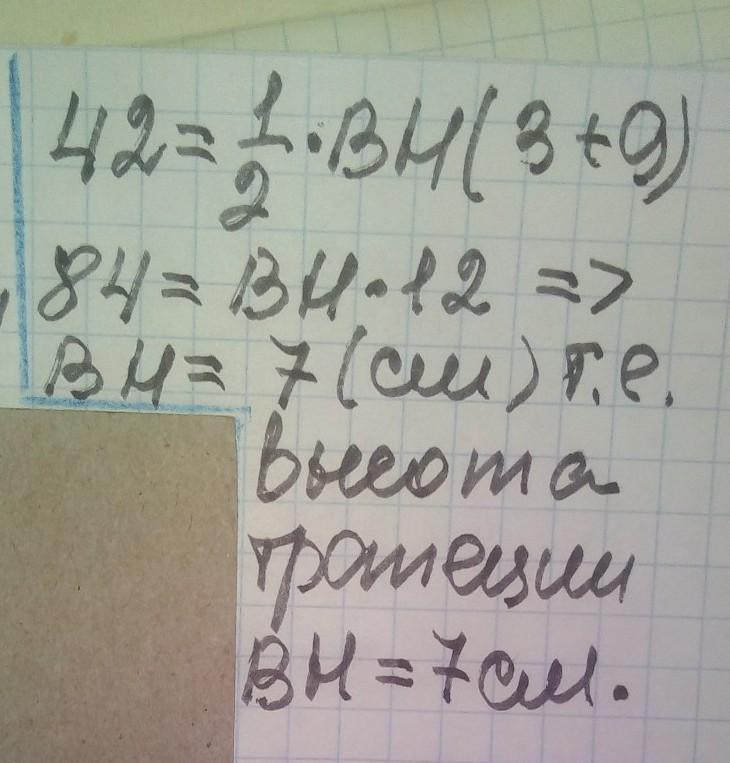 42 = 1/2 · BH(3+9)
84 = BH · 12 =>
BH = 7 (см) т.е.
высота
трапеции
BH = 7 см.